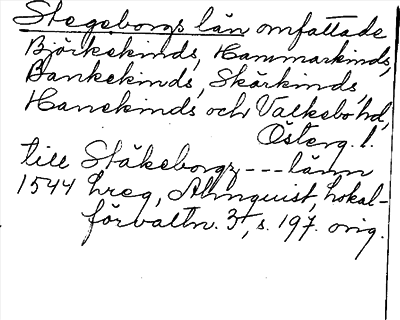 Stegeborgs län omfattade
Björkekinds, Hammarkinds,
Bankekinds, Skärkinds,
Hanekinds och Valkebo hrd,
Österg. l.
till Stäkeborgz --- länn
1544 hreg, Almquist, Lokal-
förvaltn. 3, s. 197. orig.